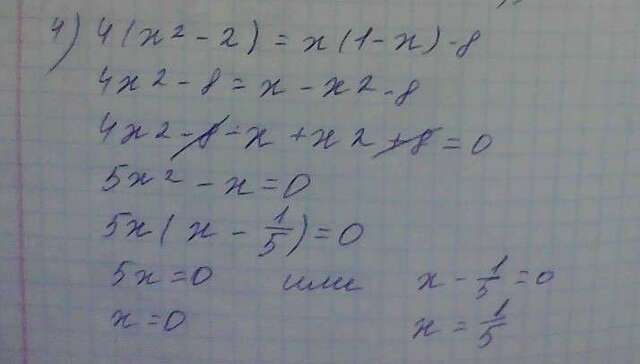 4) 4(x² - 2) = x(1 - x) - 8
4x2 - 8 = x - x2 - 8
4x2 - 8 - x + x2 + 8 = 0
5x² - x = 0
5x(x - 1/5) = 0
5x = 0 или x - 1/5 = 0
x = 0 x = 1/5